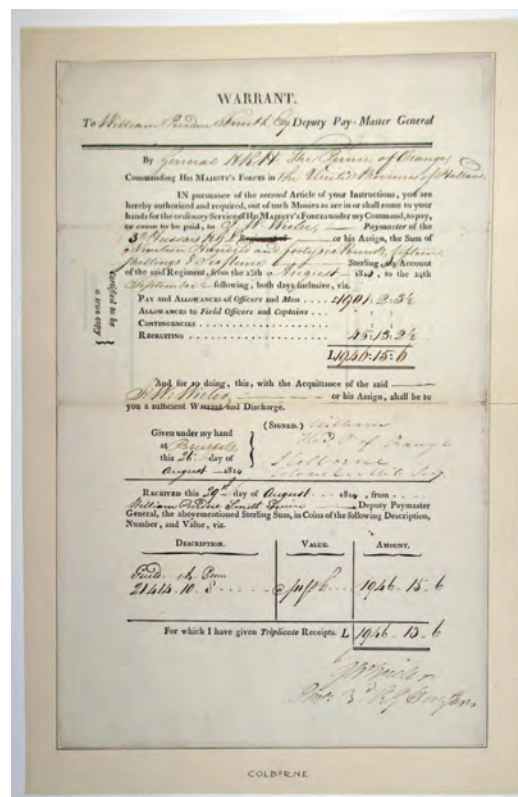 WARRANT.
To William Purdue Smith Esq Deputy Pay-Master General
By General H.R.H. The Prince of Orange,
Commanding His Majesty's Forces in the United Provinces of Holland.
IN pursuance of the second Article of your Instructions, you are
hereby authorized and required, out of such Monies as are in or shall come to your
hands for the ordinary Service of His Majesty's Forces under my Command, to pay,
or cause to be paid, to Paymaster of the
3d Hussars KGL Regiment of or his Assign, the Sum of
Nineteen Hundred and forty six Pounds, fifteen
shillings & Six Pence Sterling, on Account
of the said Regiment, from the 25th August 1814, to the 24th
September following, both days inclusive, viz.
Pay and Allowances of Officers and Men .... £1901. 2. 3½
Allowances to Field Officers and Captains ...
Contingencies
Recruiting 45. 13. 2½
L1946. 15. 6
Certified to be
a true copy
And for so doing, this, with the Acquittance of the said
or his Assign, shall be to
you a sufficient Warrant and Discharge.
(Signed.) William
Given under my hand Pr. of Orange
at Brussels
this 26 day of Colborne
August 1814 Colonel & Mil. Secy
Received this 29th day of August 1814, from
William Purdue Smith Deputy Paymaster
General, the abovementioned Sterling Sum, in Coins of the following Description,
Number, and Value, viz.
Description. Value. Amount.
21414. 10. 8 1946. 15. 6
For which I have given Triplicate Receipts. L 1946. 15. 6
COLBORNE